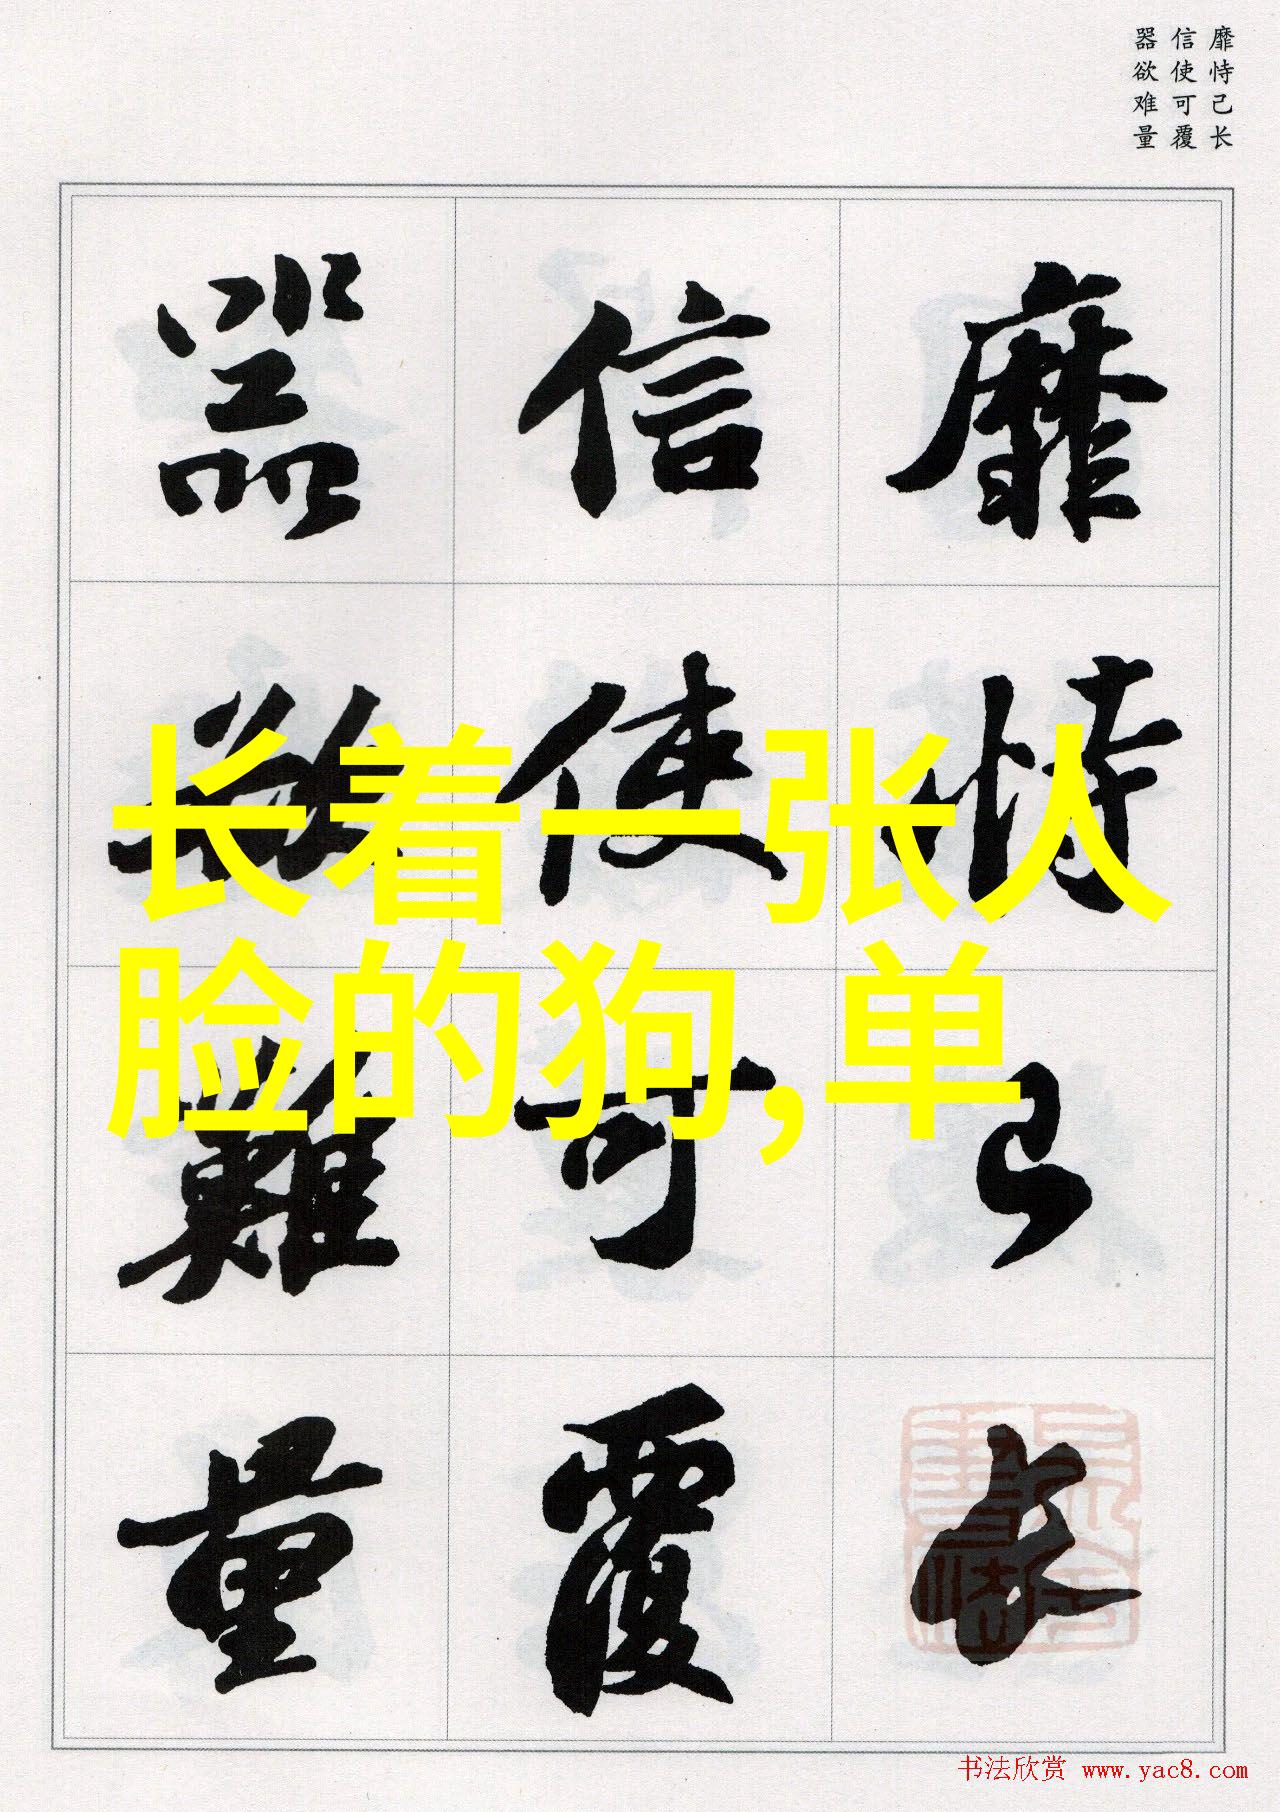 靡恃己长
信使可覆
器欲难量
靡恃己长
信使可覆
器欲難量
长着一张人
脸的狗,单
书法欣赏 www.yac8.com